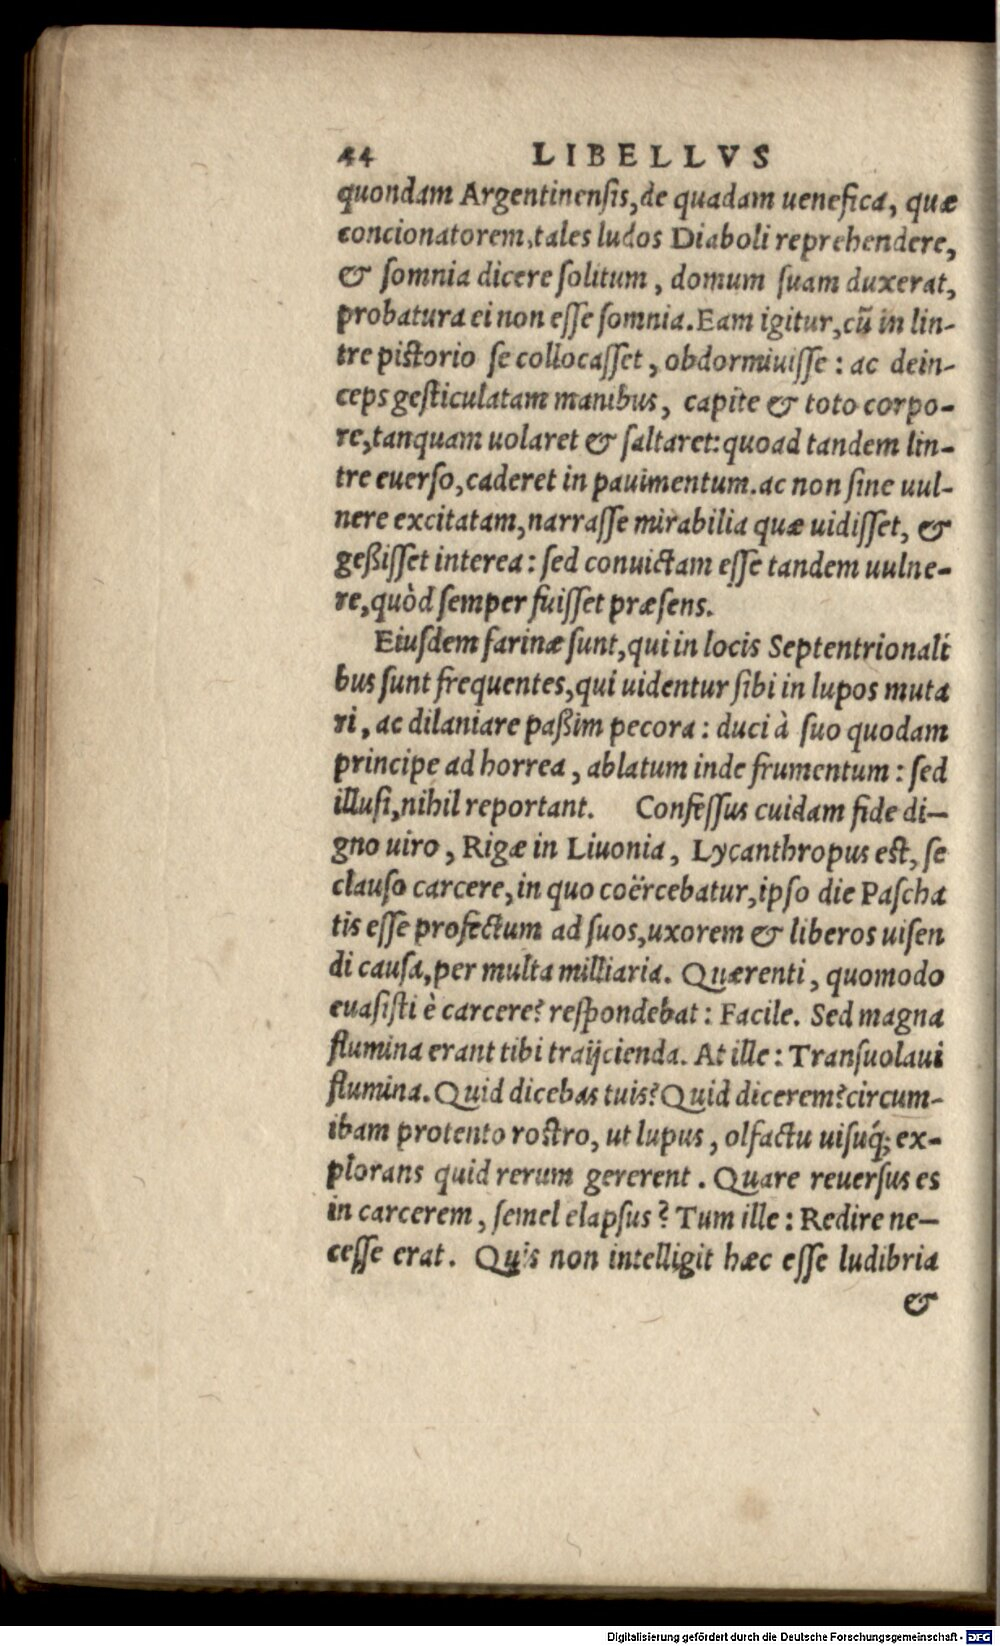 44 LIBELLVS
quondam Argentinenſis, de quadam uenefica, quæ
concionatorem, tales ludos Diaboli reprehendere,
& ſomnia dicere ſolitum, domum ſuam duxerat,
probatura ei non eſſe ſomnia. Eam igitur, cũ in lin-
tre piſtorio ſe collocaſſet, obdormiuiſſe: ac dein-
ceps geſticulatam manibus, capite & toto corpo-
re, tanquam uolaret & ſaltaret: quoad tandem lin-
tre euerſo, caderet in pauimentum. ac non ſine uul-
nere excitatam, narraſſe mirabilia quæ uidiſſet, &
geßiſſet interea: ſed conuictam eſſe tandem uulne-
re, quòd ſemper fuiſſet præſens.
Eiuſdem farinæ ſunt, qui in locis Septentrionali
bus ſunt frequentes, qui uidentur ſibi in lupos muta
ri, ac dilaniare paßim pecora: duci à ſuo quodam
principe ad horrea, ablatum inde frumentum: ſed
illuſi, nihil reportant. Confeſſus cuidam fide di-
gno uiro, Rigæ in Liuonia, Lycanthropus eſt, ſe
clauſo carcere, in quo coërcebatur, ipſo die Paſcha
tis eſſe profectum ad ſuos, uxorem & liberos uiſen
di cauſa, per multa milliaria. Quærenti, quomodo
euaſiſti è carcere? reſpondebat: Facile. Sed magna
flumina erant tibi traijcienda. At ille: Tranſuolaui
flumina. Quid dicebas tuis? Quid dicerem? circum-
ibam protento roſtro, ut lupus, olfactu uiſuq́; ex-
plorans quid rerum gererent. Quare reuerſus es
in carcerem, ſemel elapſus? Tum ille: Redire ne-
ceſſe erat. Quis non intelligit hæc eſſe ludibria
&
Digitalisierung gefördert durch die Deutsche Forschungsgemeinschaft - DFG